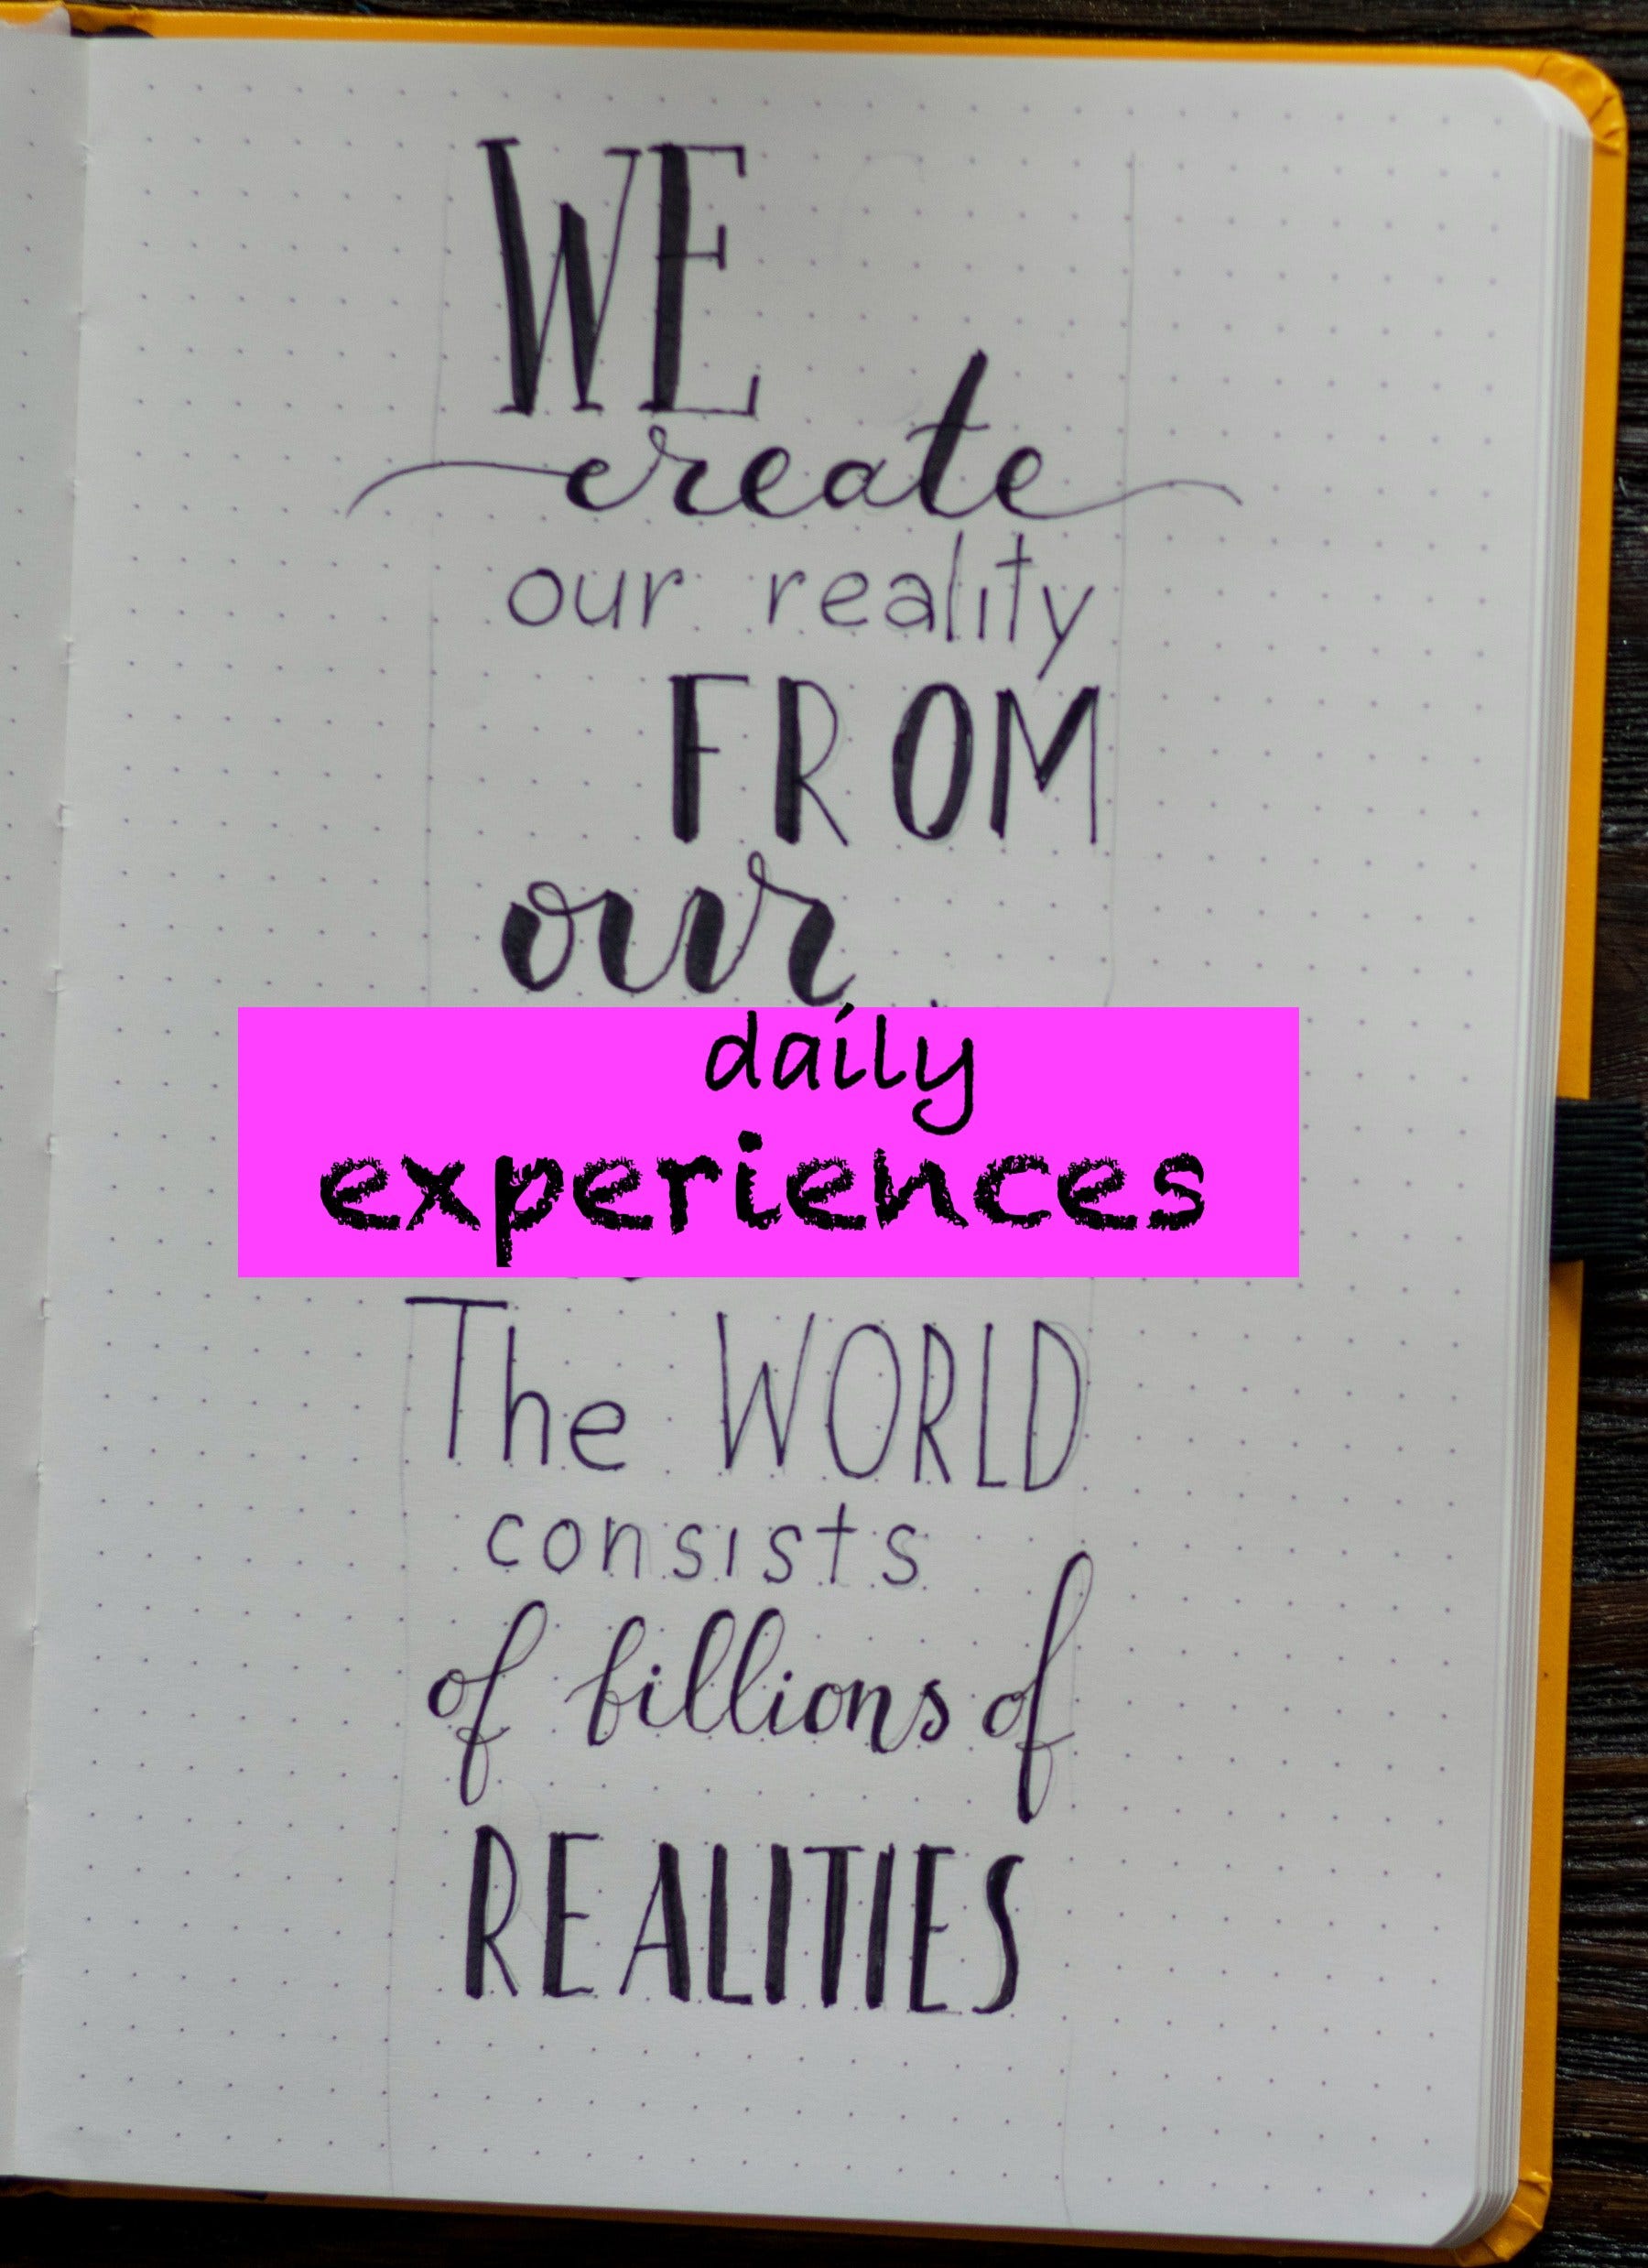 WE
create
our reality
FROM
our
daily
experiences
The WORLD
consists
of billions of
REALITIES